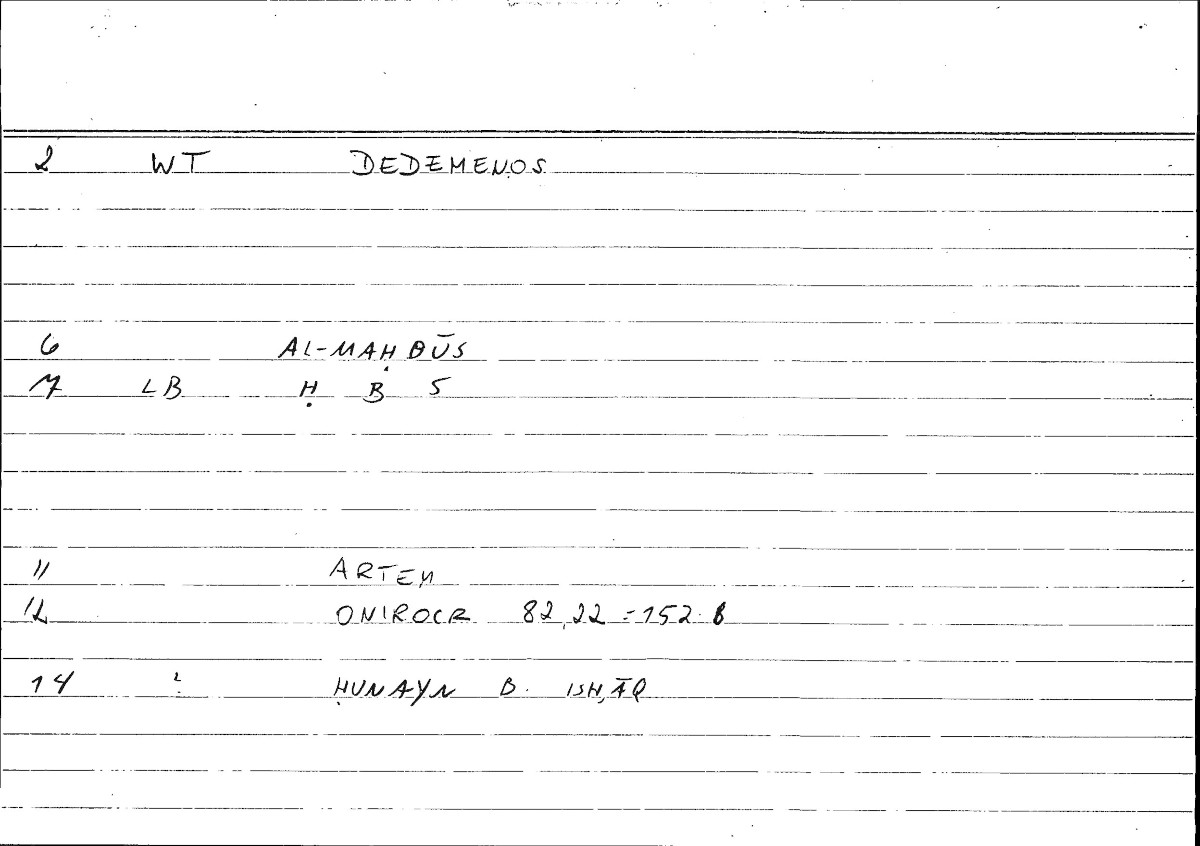 2 WT DEDEMENOS
6 AL-MAḤBŪS
7 LB Ḥ B S
11 ARTEM
12 ONIROCR 82,22 = 152.8
14 ḤUNAYN B. ISḤĀQ